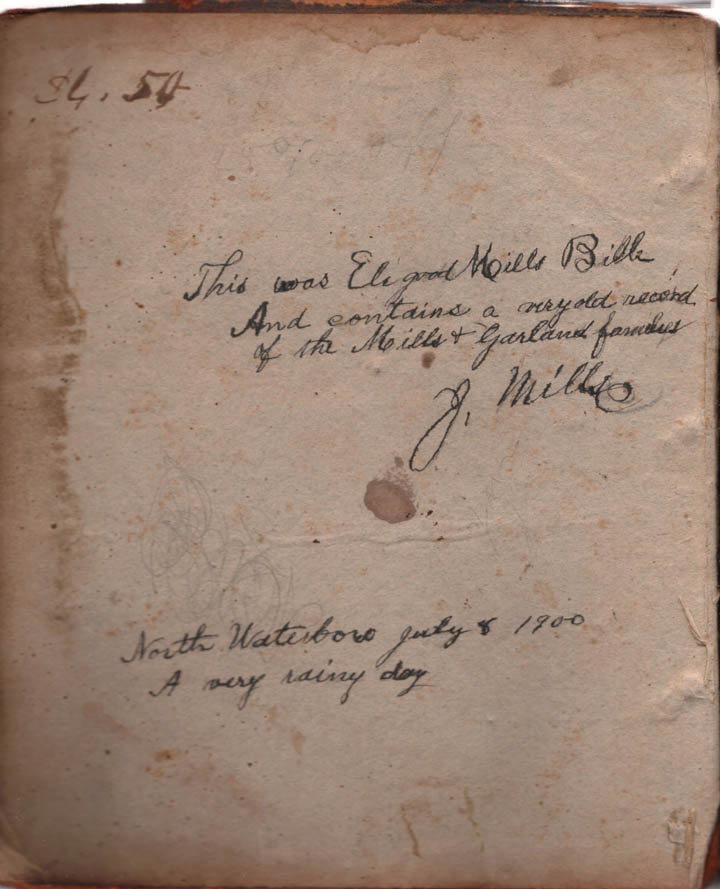 54
This was Elisgood Mills Bible
And contains a very old record
of the Mills & Garland families
J. Mills
North Waterboro July 8 1900
A very rainy day